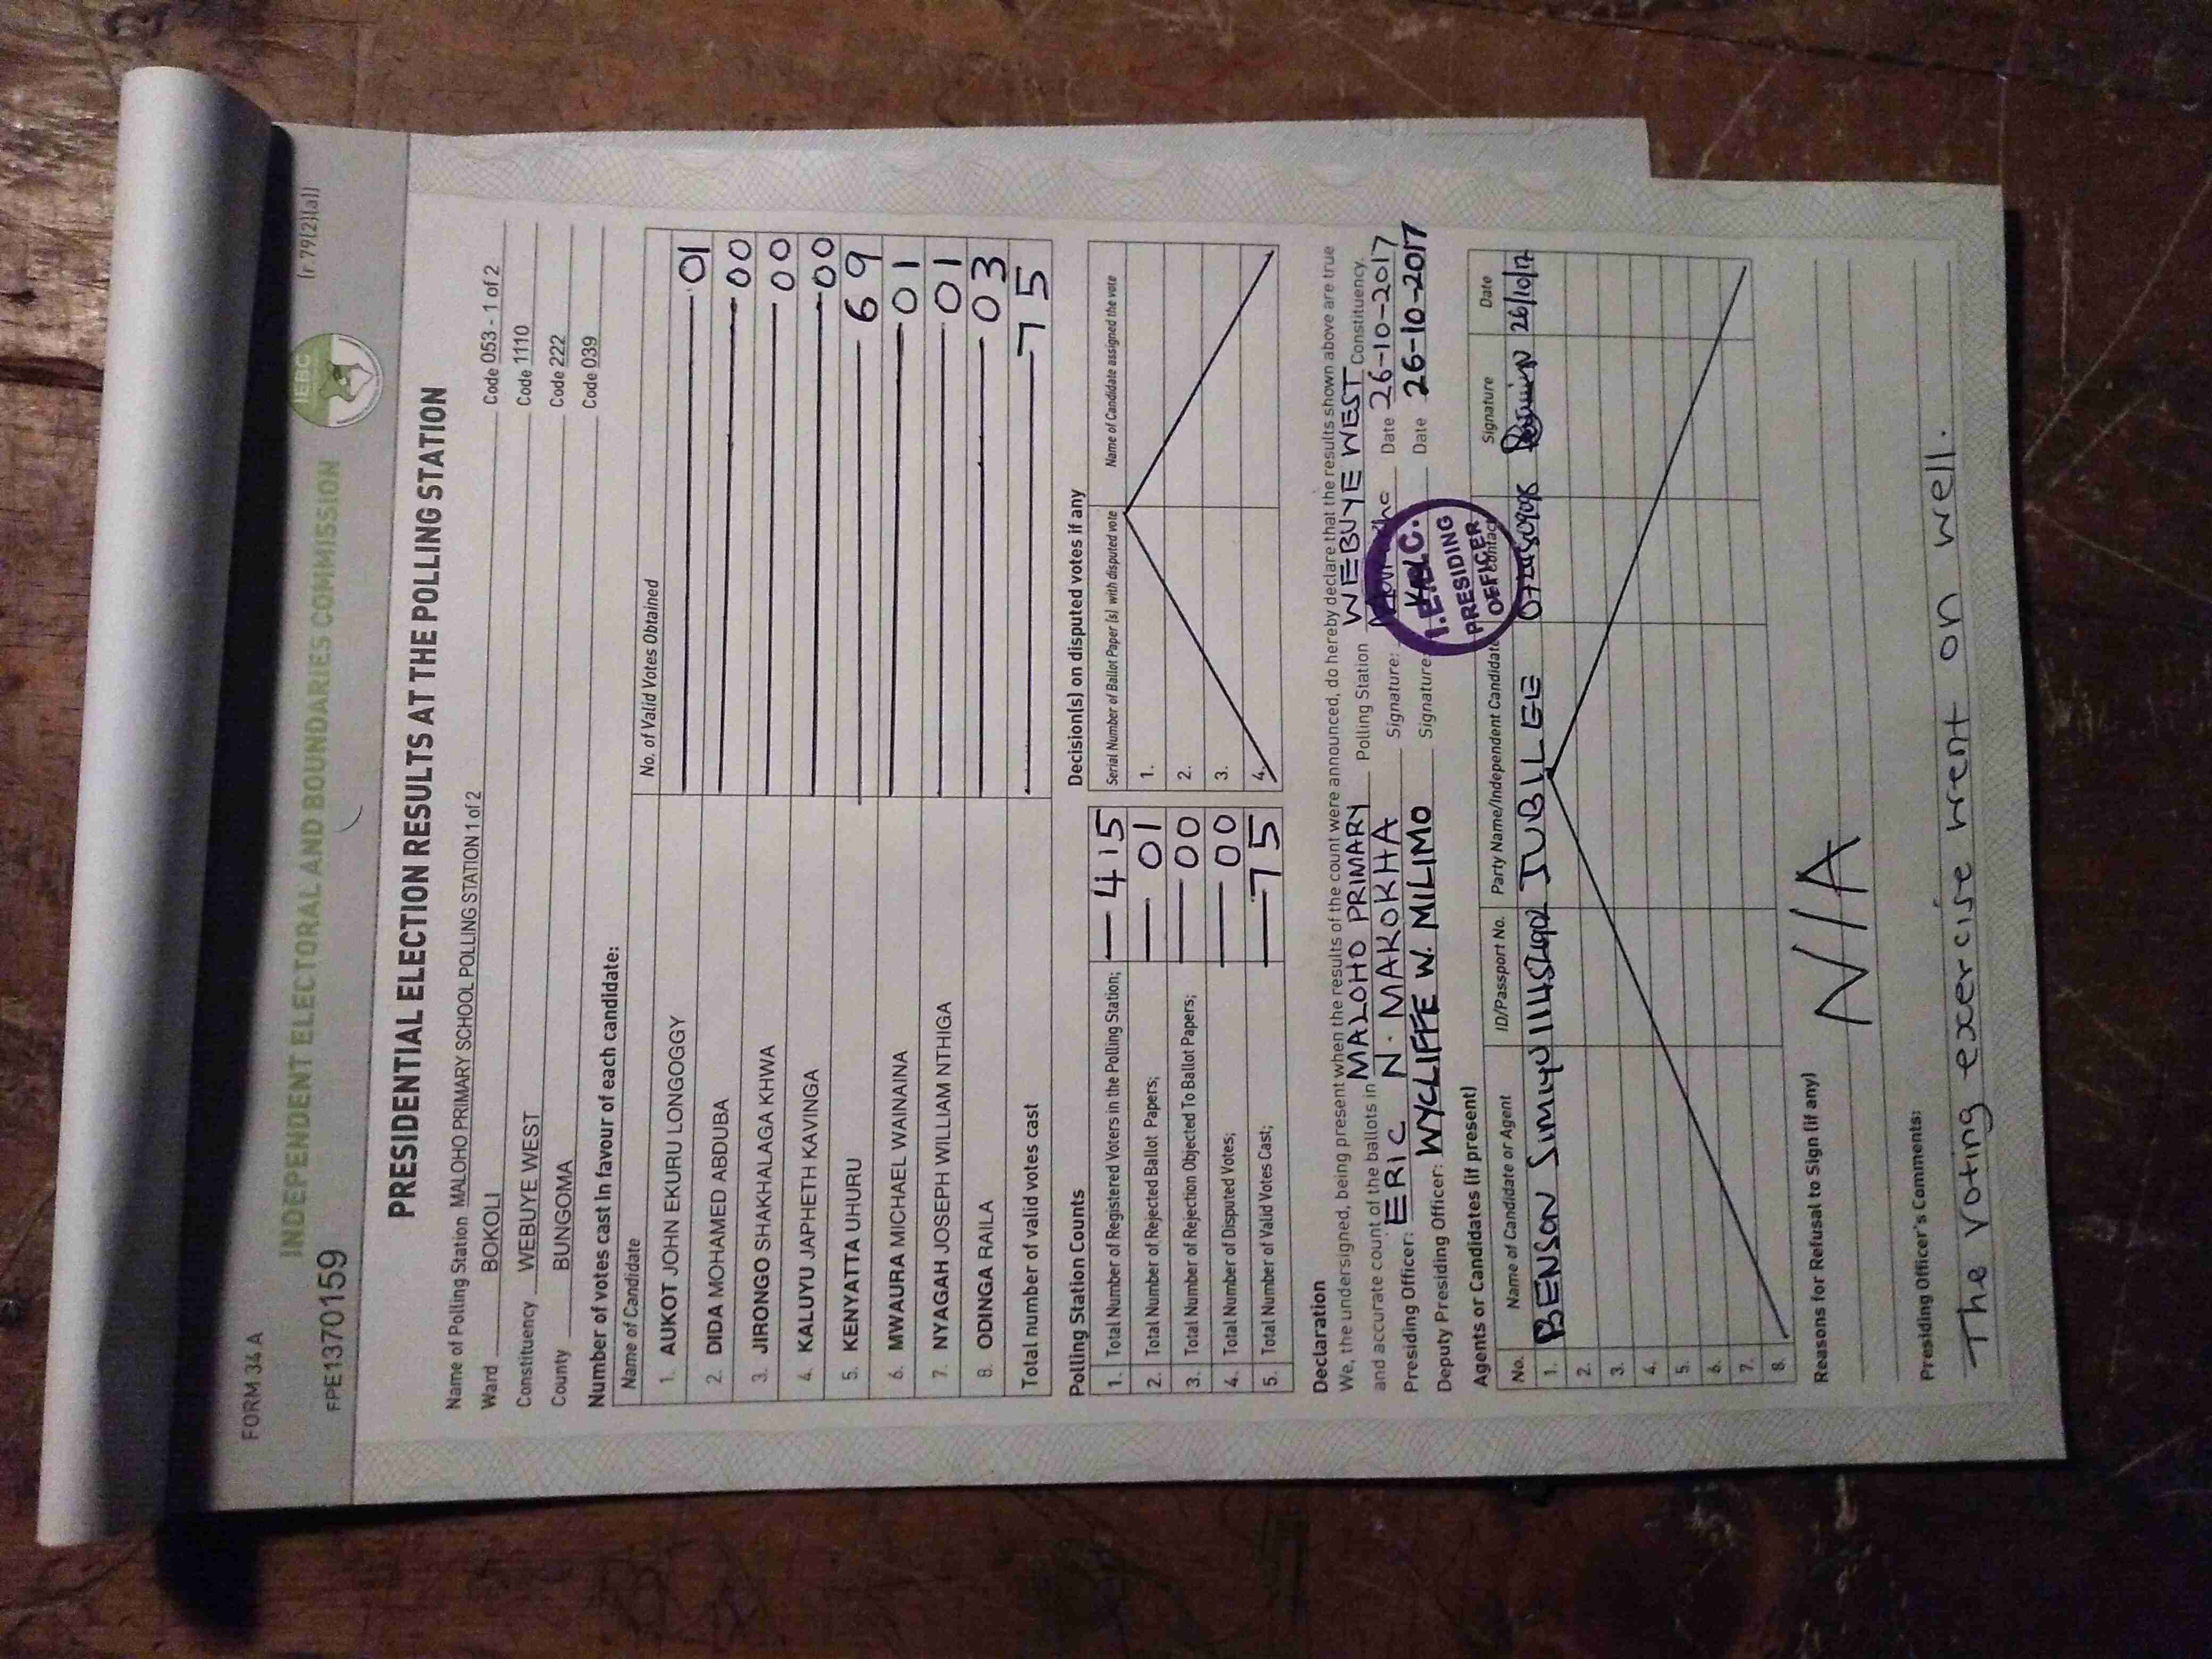 FORM 34A
(r.79(2)(a))
IEBC
INDEPENDENT ELECTORAL AND BOUNDARIES COMMISSION
FPE1370159
PRESIDENTIAL ELECTION RESULTS AT THE POLLING STATION
Name of Polling Station MALOHO PRIMARY SCHOOL POLLING STATION 1 of 2 Code 053 - 1 of 2
Ward BOKOLI Code 1110
Constituency WEBUYE WEST Code 222
County BUNGOMA Code 039
Number of votes cast in favour of each candidate:
Name of Candidate No. of Valid Votes Obtained
1. AUKOT JOHN EKURU LONGOGGY 01
2. DIDA MOHAMED ABDUBA 00
3. JIRONGO SHAKHALAGA KHWA 00
4. KALUYU JAPHETH KAVINGA 00
5. KENYATTA UHURU 69
6. MWAURA MICHAEL WAINAINA 01
7. NYAGAH JOSEPH WILLIAM NTHIGA 01
8. ODINGA RAILA 03
Total number of valid votes cast 75
Polling Station Counts
1. Total Number of Registered Voters in the Polling Station; 415
2. Total Number of Rejected Ballot Papers; 01
3. Total Number of Rejection Objected To Ballot Papers; 00
4. Total Number of Disputed Votes; 00
5. Total Number of Valid Votes Cast; 75
Decision(s) on disputed votes if any
Serial Number of Ballot Paper (s) with disputed vote Name of Candidate assigned the vote
1.
2.
3.
4.
Declaration
We, the undersigned, being present when the results of the count were announced, do hereby declare that the results shown above are true
and accurate count of the ballots in MALOHO PRIMARY Polling Station WEBUYE WEST Constituency.
Presiding Officer: ERIC N. MAKOKHA Signature: Date 26-10-2017
Deputy Presiding Officer: WYCLIFFE W. MILIMO Signature: Date 26-10-2017
I.E.B.C.
PRESIDING
OFFICER
Agents or Candidates (if present)
No. Name of Candidate or Agent ID/Passport No. Party Name/Independent Candidate Contact Signature Date
1. BENSON Simiyu JUBILEE 26/10/17
2.
3.
4.
5.
6.
7.
8.
Reasons for Refusal to Sign (if any)
N/A
Presiding Officer's Comments:
The voting exercise went on well.